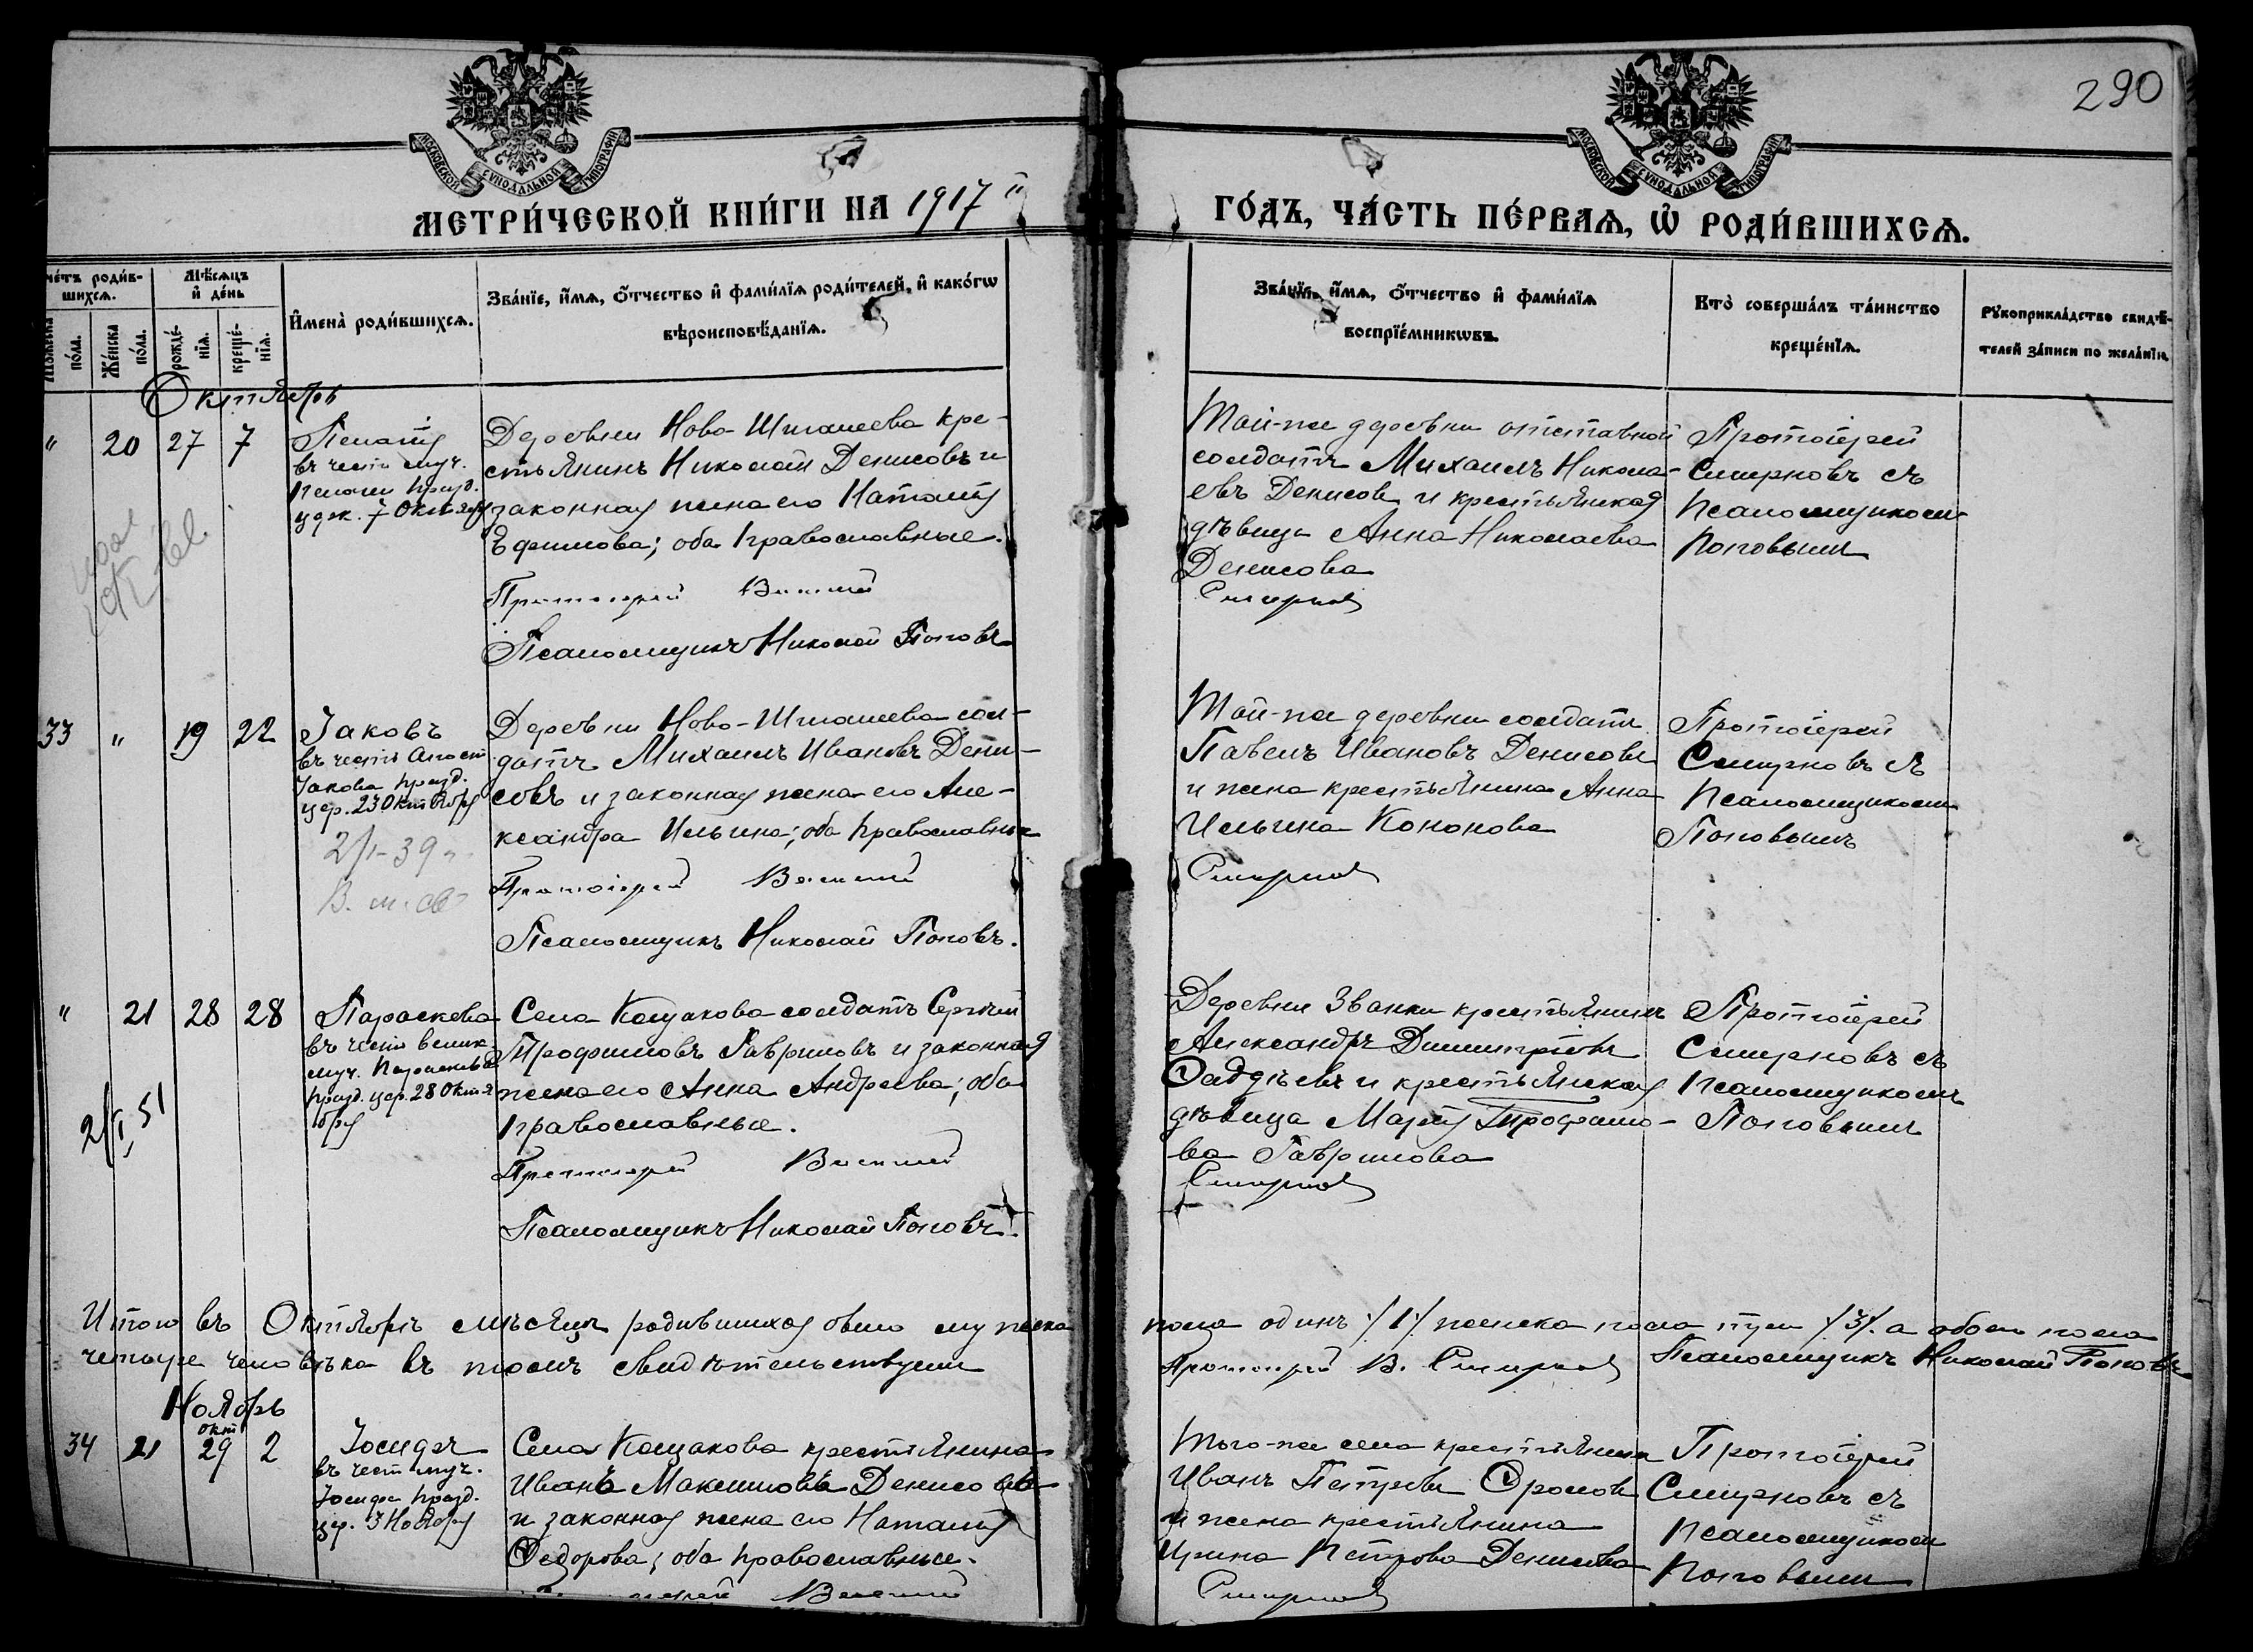 290
МОСКОВСКОЙ СУНОДАЛЬНОЙ ТИПОГРАФІИ
МОСКОВСКОЙ СУНОДАЛЬНОЙ ТИПОГРАФІИ
МЕТРИ́ЧЕСКОЙ КНИ́ГИ НА 1917
ГО́ДЪ, ЧА́СТЬ ПЕ́РВАѦ, Ѡ҆ РОДИ́ВШИХСѦ.
че́тъ роди́в-
шихсѧ.
Мѣ́сѧцъ
и҆ де́нь
Мꙋ́жеска
по́ла.
Же́нска
по́ла.
рожде́-
нїѧ.
креще́-
нїѧ.
И҆мена̀ роди́вшихсѧ.
Зва́нїе, и҆́мѧ, ѻ҆́тчество и҆ фами́лїѧ роди́телей, и҆ како́гѡ
вѣроисповѣ́данїѧ.
Зва́нїе, и҆́мѧ, ѻ҆́тчество и҆ фами́лїѧ
воспрїе́мникѡвъ.
Кто̀ соверша́лъ та́инство
креще́нїѧ.
Рꙋкоприкла́дство свидѣ́-
телей за́писи по жела́нїю.
Октябрь
" 20 27 7
Пелагія
въ честь муч.
Пелагіи празд.
7 Октября
Деревни Ново-Шигалеева кре-
стьянинъ Николай Денисовъ и
законная жена его Наталія
Ефимова; оба православные.
Протоіерей Василій
Псаломщикъ Николай Поповъ
Той-же деревни отставной
солдатъ Михаилъ Никола-
евъ Денисовъ и крестьянская
дѣвица Анна Николаева
Денисова
Смирновъ
Протоіерей
Смирновъ съ
Псаломщикомъ
Поповымъ
33 " 19 22
Іаковъ
въ честь Апост.
Іакова празд.
цер. 23 Октября
2/I-39 г.
Деревни Ново-Шигалеева сол-
датъ Михаилъ Ивановъ Дени-
совъ и законная жена его Але-
ксандра Ильина; оба православные
Протоіерей Василій
Псаломщикъ Николай Поповъ.
Той-же деревни солдатъ
Павелъ Ивановъ Денисовъ
и жена крестьянина Анна
Ильина Кононова
Смирновъ
Протоіерей
Смирновъ съ
Псаломщикомъ
Поповымъ
" 21 28 28
Параскева
въ честь велик.
муч. Параскевы
празд. цер. 28 Октя-
бря
2/I 51
Села Кощакова солдатъ Сергѣй
Трофимовъ Гавриловъ и законная
жена его Анна Андреева; оба
православные.
Протоіерей Василій
Псаломщикъ Николай Поповъ.
Деревни Званки крестьянинъ
Александръ Димитріевъ
Фаддѣевъ и крестьянская
дѣвица Марія Трофимо-
ва Гаврилова
Смирновъ
Протоіерей
Смирновъ съ
Псаломщикомъ
Поповымъ
Итого въ Октябрѣ мѣсяцѣ родившихся было мужска
пола одинъ /1/ женска пола три /3/. а обоего пола
четыре человѣка въ томъ свидѣтельствуемъ
Протоіерей В. Смирновъ Псаломщикъ Николай Поповъ
Ноябрь
окт
34 21 29 2
Іосифъ
въ честь муч.
Іосифа празд.
цер. 3 Ноября
Села Кощакова крестьянина
Иванъ Максимовъ Денисовъ
и законная жена его Наталія
Федорова; оба православные.
Василій
Того-же села крестьянинъ
Иванъ Петровъ Фроловъ
и жена крестьянина
Ирина Петрова Денисова
Смирновъ
Протоіерей
Смирновъ съ
Псаломщикомъ
Поповымъ